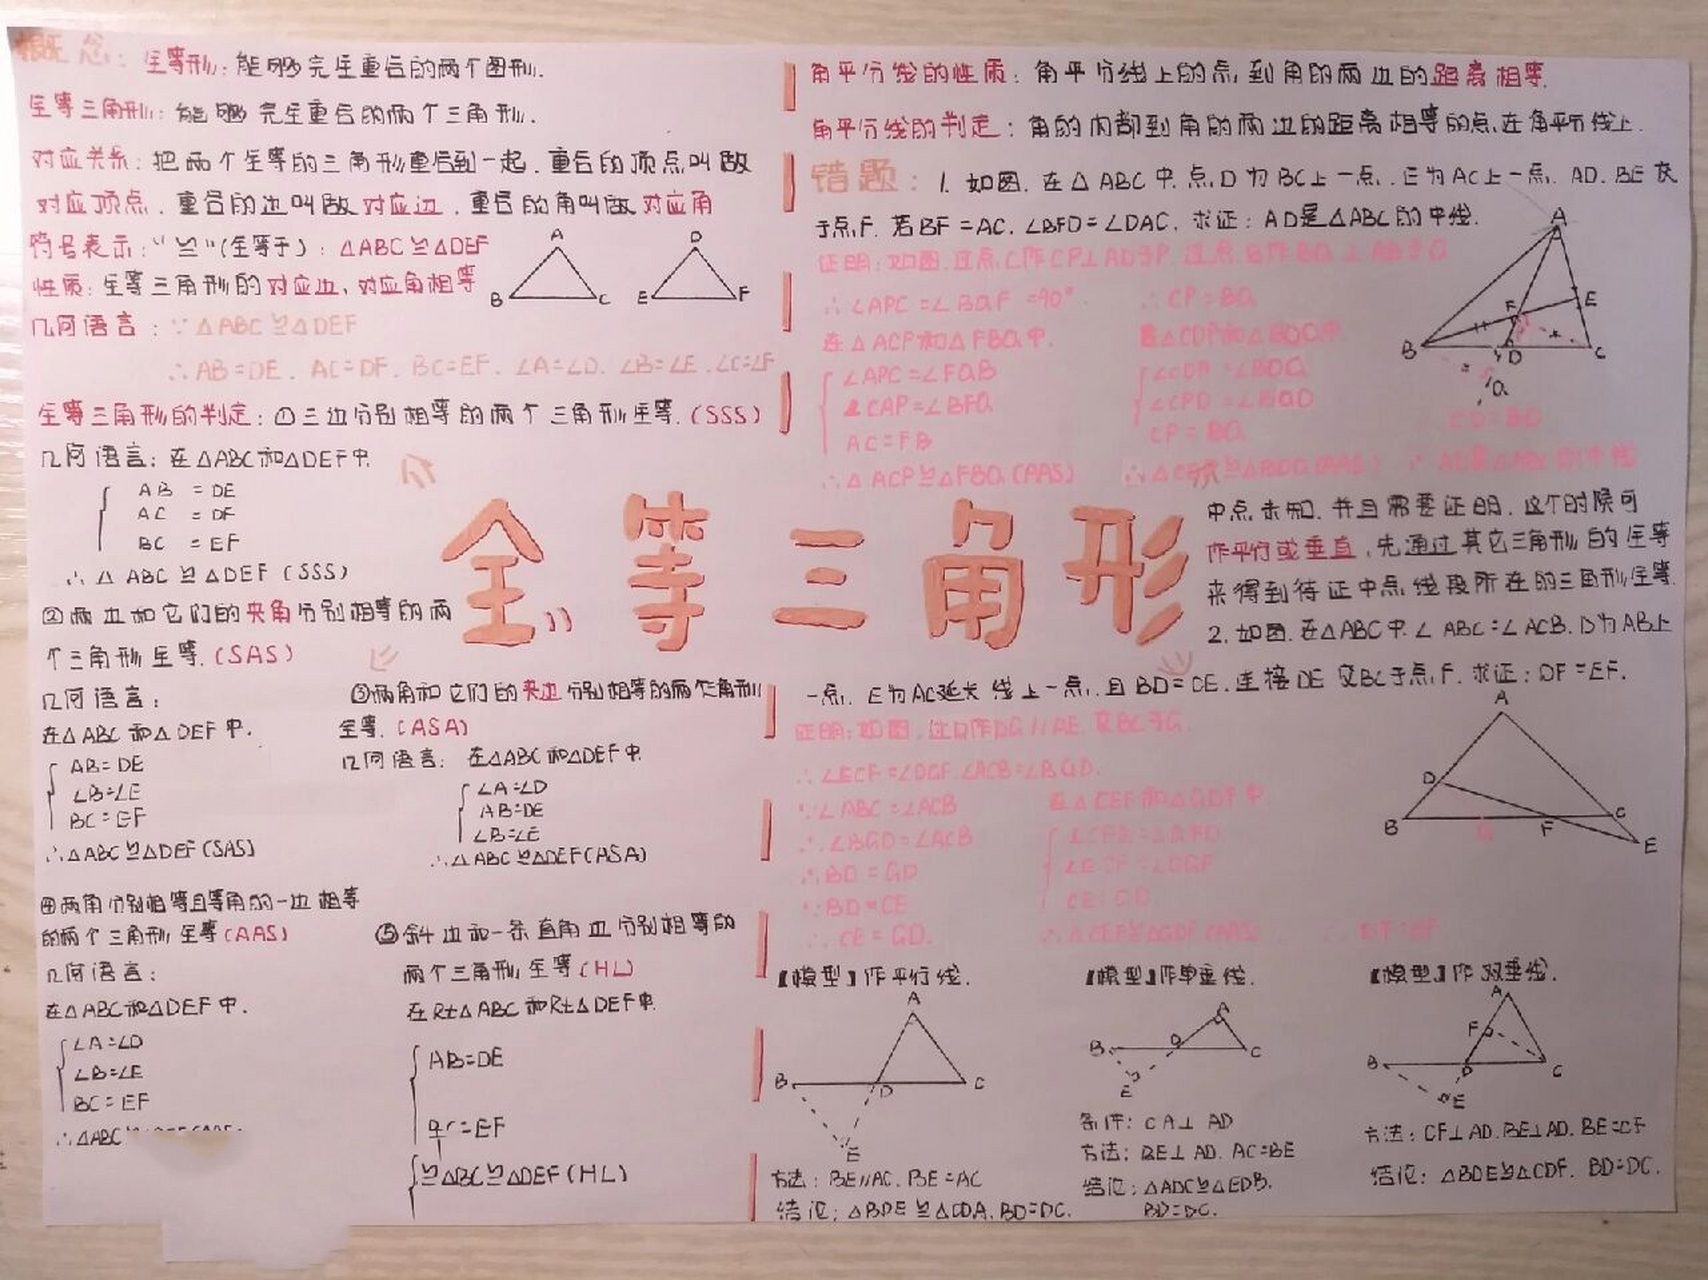 概念：全等形：能够完全重合的两个图形.
全等三角形：能够完全重合的两个三角形.
对应关系：把两个全等的三角形重合到一起.重合的顶点叫做
对应顶点.重合的边叫做对应边.重合的角叫做对应角
符号表示："≌"(全等于)：△ABC≌△DEF
性质：全等三角形的对应边、对应角相等
A
B
C
D
E
F
几何语言：∵△ABC≌△DEF
∴AB=DE. AC=DF. BC=EF. ∠A=∠D. ∠B=∠E. ∠C=∠F
全等三角形的判定：①三边分别相等的两个三角形全等.(SSS)
几何语言：在△ABC和△DEF中
AB = DE
AC = DF
BC = EF
∴△ABC≌△DEF(SSS)
全等三角形
②两边和它们的夹角分别相等的两
个三角形全等.(SAS)
几何语言：
在△ABC和△DEF中.
AB=DE
∠B=∠E
BC=EF
∴△ABC≌△DEF(SAS)
③两角和它们的夹边分别相等的两个三角形
全等.(ASA)
几何语言：在△ABC和△DEF中
∠A=∠D
AB=DE
∠B=∠E
∴△ABC≌△DEF(ASA)
④两角分别相等且等角的一边相等
的两个三角形全等(AAS)
几何语言：
在△ABC和△DEF中.
∠A=∠D
∠B=∠E
BC=EF
∴△ABC
⑤斜边和一条直角边分别相等的
两个三角形全等(HL)
在Rt△ABC和Rt△DEF中
AB=DE
BC=EF
≌△ABC≌△DEF(HL)
角平分线的性质：角平分线上的点到角的两边的距离相等.
角平分线的判定：角的内部到角的两边的距离相等的点在角平分线上.
错题：1.如图.在△ABC中.点D为BC上一点.E为AC上一点.AD.BE交
于点F.若BF=AC.∠BFD=∠DAC.求证：AD是△ABC的中线.
证明：如图.过点C作CP⊥AD于P.过点B作BQ⊥AB于Q
∴∠APC=∠BQF=90°.
在△ACP和△FBQ中.
∠APC=∠FQB
∠CAP=∠BFQ
AC=FB
∴△ACP≌△FBQ(AAS)
∴CP=BQ
在△CDP和△BDQ中.
∠CDP=∠BDQ
∠CPD=∠BQD
CP=BQ
∴△CDP≌△BDQ(AAS)
CD=BD
∴AD是△ABC的中线
A
B
C
D
E
F
Q
中点未知.并且需要证明.这个时候可
作平行或垂直,先通过其它三角形的全等
来得到待证中点线段所在的三角形全等.
2.如图.在△ABC中.∠ABC=∠ACB.D为AB上
一点.E为AC延长线上一点.且BD=CE.连接DE交BC于点F.求证：DF=EF.
证明：如图.过D作DG//AE.交BC于G.
∴∠ECF=∠DGF.∠ACB=∠BGD.
∵∠ABC=∠ACB
∴∠BGD=∠ACB
∴BD=GD
∵BD=CE
∴CE=GD.
在△CEF和△GDF中
∠CFE=∠GFD
∠ECF=∠DGF
CE=GD
∴△CEF≌△GDF(AAS)
A
B
C
D
E
F
G
【模型】作平行线.
A
B
D
C
E
方法：BE//AC.BE=AC
结论：△BDE≌△CDA.BD=DC.
【模型】作单垂线.
A
B
D
C
E
条件：CA⊥AD
方法：BE⊥AD.AC=BE
结论：△ADC≌△EDB.
BD=DC.
【模型】作双垂线.
A
F
B
D
C
E
方法：CF⊥AD.BE⊥AD.BE=CF
结论：△BDE≌△CDF. BD=DC.